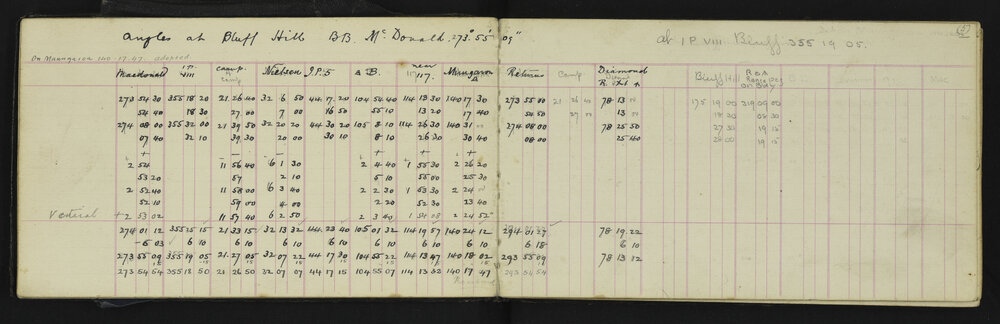 Angles at Bluff Hill BB. McDonald. 273° 55' 09"
at IP VIII Bluff 355 19 05.
On Maungaroa 140.17.47. adopted
Macdonald IP VIII Camp A Neilson I.P.5 A B. near 117. Maungaroa A Returns Camp Diamond Bluff Hill
273 54 30 355 18 20 21 26 40 32 6 50 44 17 20 104 54 40 114 13 30 140 17 30 273 55 00 21 26 40 78 13 00 175 19 00 219 09 00
54 40 18 30 27 00 7 00 16 50 55 10 13 20 17 40 54 50 27 00 13 00 18 20 08 30
274 08 00 355 32 00 21 39 50 32 20 20 44 30 20 105 8 10 114 26 30 140 31 00 274 08 00 78 25 50 27 30 19 15
07 40 32 10 39 30 20 00 30 10 8 10 26 30 30 40 08 00 25 40 28 00 19 15
2 54 11 56 40 6 1 30 2 4 40 1 55 30 2 26 20
53 20 57 2 10 5 10 55 00 25 30
2 52 40 11 58 00 6 3 40 2 2 30 1 53 30 2 24 00
52 10 59 00 4 00 2 20 52 30 23 40
Vertical + 2 53 02 11 57 40 6 2 50 2 3 40 1 54 08 2 24 52
274 01 12 355 25 15 21 33 15 32 13 32 44 23 40 105 01 32 114 19 57 140 24 12 294 01 27 78 19 22
- 6 03 6 10 6 10 6 10 6 10 6 10 6 10 6 10 6 18 6 10
273 55 09 355 19 05 21 27 05 32 07 22 44 17 30 104 55 22 114 13 47 140 18 02 293 55 09 78 13 12
15 15 15 15 15 15 15 15
273 54 54 355 18 50 21 26 50 32 07 07 44 17 15 104 55 07 114 13 32 140 17 47 293 54 54